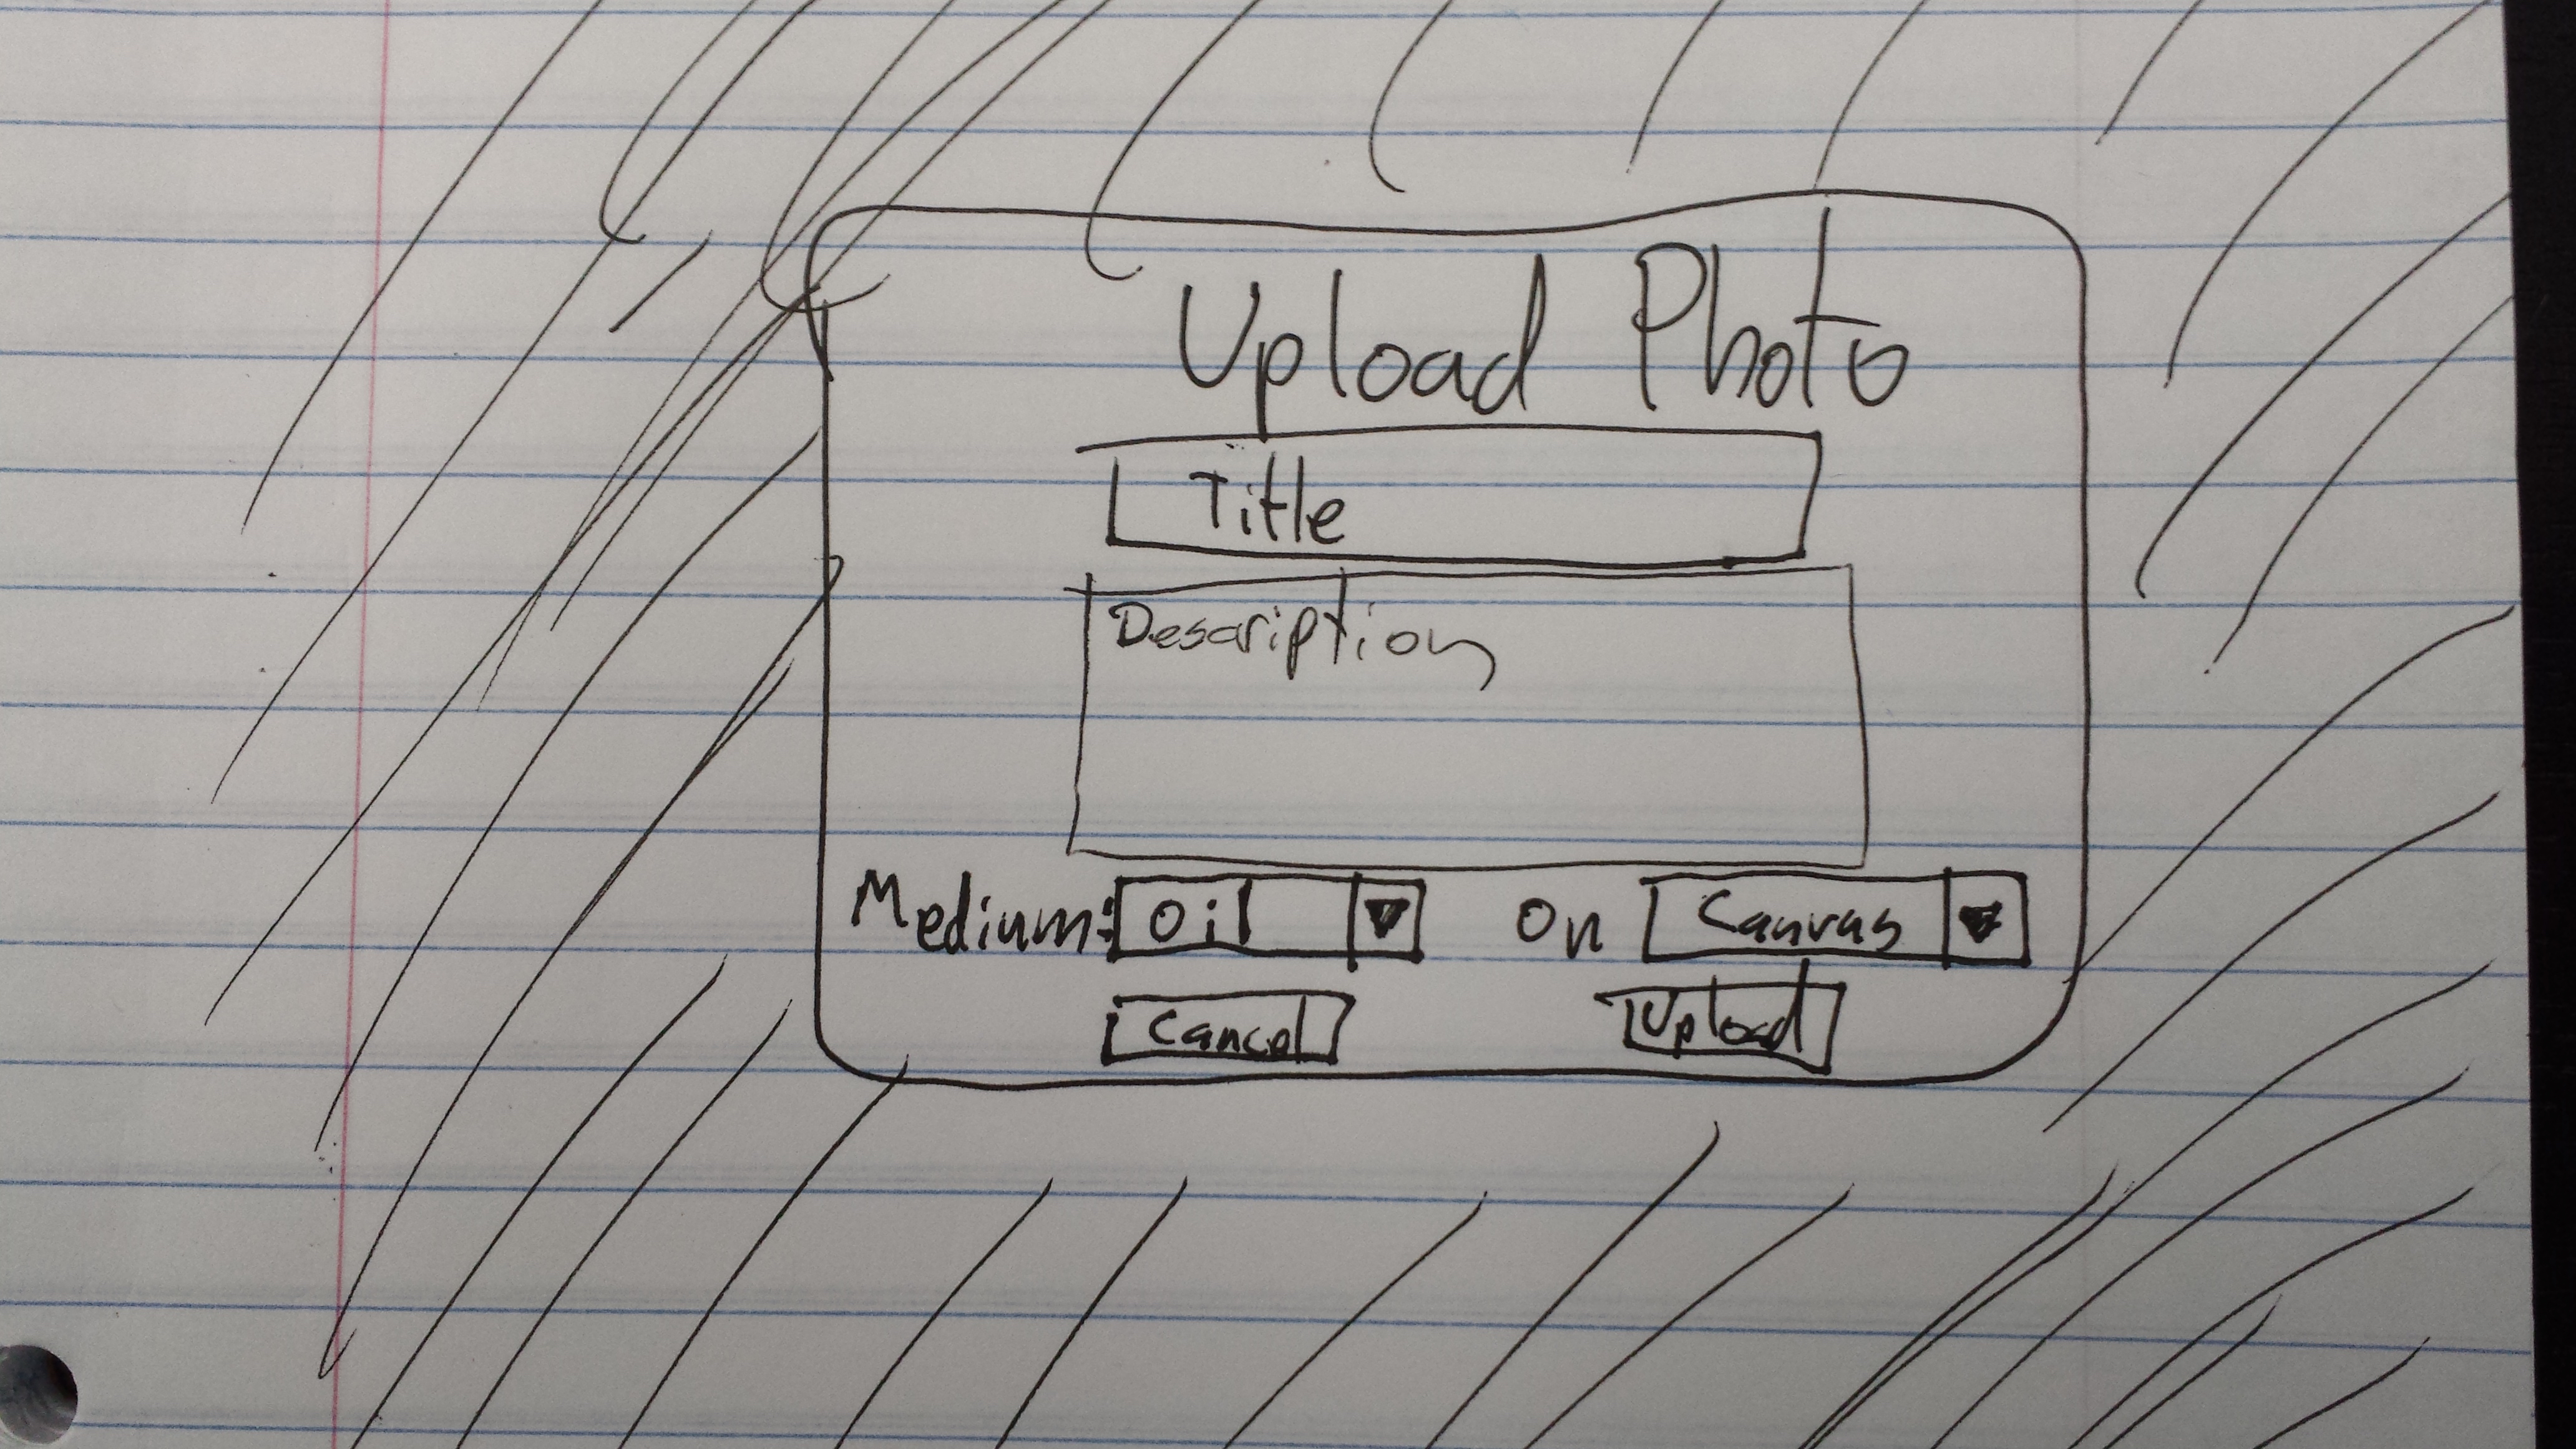 Upload Photo
Title
Description
Medium: Oil On Canvas
Cancel Upload